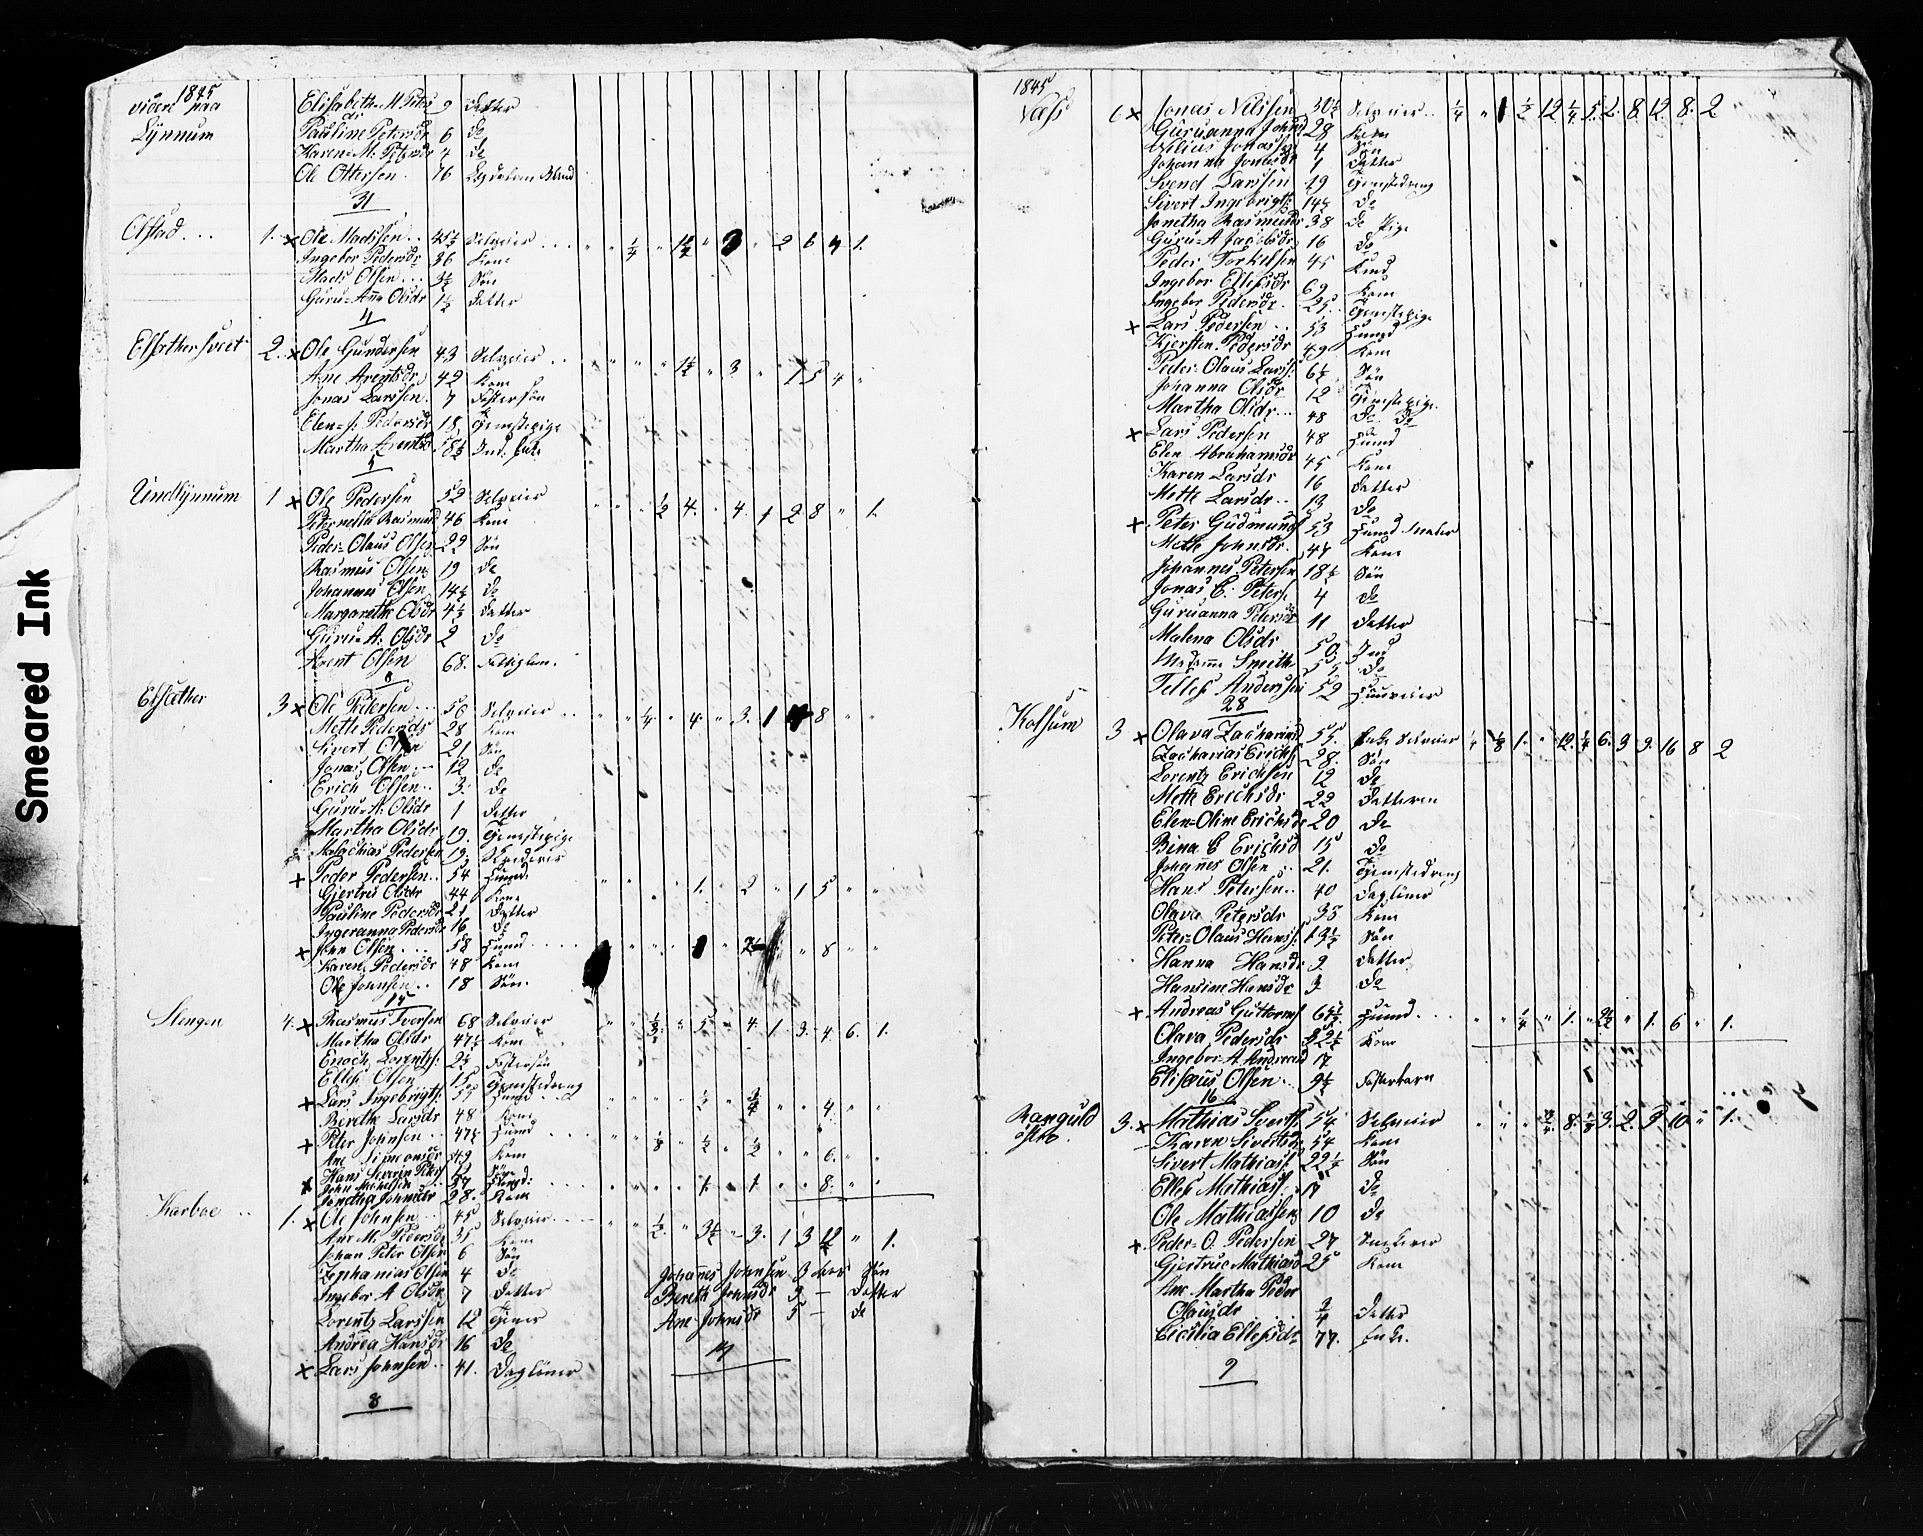 Smeared Ink
1845
videre paa Elisabeth M. Peters dr 9 Datter
Lynnum Pauline Petersdr 6 do
Karen M. Petersdr 4 do
Ole Ottersen 76
31
Olstad... 1. x Ole Madssen.. 45½ Selveier... " " ¼ " 1½ " 3 " 2 6 4 1.
Ingebor Pedersdr 36 Kone
Mads Olsen... 3½ Søn
Guru-Aña Olsdr 1½ Datter
4
2. x Ole Gundersen 43 Selveier.. " " " " 1½ " 3 " 1 5 4 "
Ane Arentsdr 42 Kone
Jonas Larssen. 7 Fostersøn
Pedersdr 18. Tjenstepige
Martha Arentsd 78½ Ind. Enke
5
Undlynnum 1 x Ole Pedersen 52 Selveier " " " ½ 4. " 4. 1 2 8 " 1.
Peternella Rasmusd 46 Kone
Peder-Olaus Olsen 22 Søn
Rasmus Olsen 19 do
Johannes Olsen 14½ do
Margarethe Olsdr 4½ Datter
Guru-A. Olsdr 2 do
Arent Olsen 68. Fattiglem.
8
Elsæther 3 x Ole Pedersen... 50 Selveier.. " " ¼ " 4. " 3. 1 4 8 " "
Mette Pedersdr 28 Kone
Sivert Olsen 21 Søn
Jonas Olsen... 12 do
Erich Olsen.. 3. do
Guru-A. Olsdr 1 Datter
Martha Olsdr 19. Tjenstepige
Malachias Pedersen 19.
+ Peder Pedersen.. 54 Huusmd. " " " " 1. " 2 " 1 5 " "
Gjertru Olsdr 44 Kone
Pauline Pedersdr 21 Datter
Ingeranna Pedersdr 16 do
+ John Olsen.... 58 Huusmd.... " " " " 1 " " 8 " "
Karen Pedersdr 48 Kone
Ole Johnsen.. 18 Søn.
15
Stengen 4. + Rasmus Iversen 68 Selveier " " ½ " 5 " 4. 1. 3. 4. 6. 1.
Martha Olsdr 47½ Kone
Enoch Lorents: 2½ Fostersøn
Elleß Olsen 15 Tjenstedreng
+ Lars Ingebrigts: 57 Huusmd " " " " ½ " ¾ " " 4. " "
Berethe Larsdr 48 Kone
+ Peter Johnsen.. 47½ Huusmd " " ⅛ " ½ " ½ " " 6. " "
Ane Simonsdr 49 Kone
Hans Severin Peters Søn
x John Michelsen.. 37 Huusmd: " " " " 1. " 1. " " 8. " "
Jonetha Johnsdr 28. Kone
Karboe.. 1. x Ole Johnsen... 45 Selveier.... " " ½. " 3½ " 3. 1 3 12 " 1.
Ane M. Pedersdr 35 Kone
Johan Peter Olsen 6 Søn
Zephanias Olsen 4 do Johañes Johnsen 3 Aar Søn
Ingebor A Olsdr 7 Datter Bereth Johnsdr 9 — Datter
Lorents Larssen 12 Tjener Ane Johnsdr 5 — do
Andrea Hansdr 16 do 14
x Lars Johnsen.. 41. Dagløner
8
1845
Næss 6 x Jonas Nilssen 30½ Selveier.. ¼ " 1 ½ 12 ¼ 5. 2. 8. 12. 8. 2
Guruanna Johnsd 28 Kone
Nilius Jonassen 4 Søn
Johanna Jonasdr 1 Datter
Svend Larssen 19 Tjenstedreng
Sivert Ingebrigts: 14½ do
Jonetha Rasmusdr 38 do Pige
Guru-A Jacobsdr 16 do
Peder Torkilsen 45 Huusmd
Ingebor Elleßdr 69 Kone
Ingebor Pedersdr. 25. Tjenstepige
+ Lars Pedersen.. 53 Huusmd
Kjersten Pedersdr 49 Kone
Peder-Olaus Larss: 6½ Søn
Johanna Olsdr 12 Tjenstepige
Martha Olsdr... 48 do do
+ Lars Pedersen 48 Huusmd
Elen Abrahamsdr 45 Kone
Karen Larsdr 16 Datter
Mette Larsdr.. 13 do
+ Peter Gudmunds 53 Huusmd
Mette Johnsdr. 47 Kone
Johannes Petersen 18½ Søn
Jonas C. Peters. 4 do
Guruanna Petersdr 11 Datter
Malena Olsdr 50 Ind
Madame Smith 55 do
Telleß Anderssen 52
28
Kolsum 3 x Olava Zachariasd 55. Enke Selveier ¼ ⅛ 1. " 12. ¼ 6. 3 9. 16 8 2
Zacharias Erichs 28. Søn
Lorents Erichsen 12 do
Mette Erichsdr 22 Datteren
Elen-Oline Erichsdr 20 do
Bina C Erichsd 15 do
Johañes Olsen.. 21. Tjenstedreng
Hans Petersen.. 40 Dagløner
Olava Petersdr 35 Kone
Peter-Olaus Hanss: 13½ Søn
Hanna Hansdr 9. Datter
Hansine Hansdr 3. do
+ Andreas Guttorms 65½ Huusmd.... " " ¼ " 1. " 2½ " 1. 6 " 1.
Olava Pedersdr 52½ Kone
Ingebor-A. Andreasd 17
Elisæus Olsen.. 9½ Fosterbarn
16
Ranguld 3. x Mathias Siverts: 54 Selveier " " " ¾. 8. ⅛ 3. 2. 9 10 " 1.
østre. Karen Sivertsdr 54 Kone
Sivert Mathiass: 22½ Søn
Elleß Mathiass. 17 do
Ole Mathiassen 10 do
+ Peder-O. Pedersen 27
Gjertrue Mathiasd 25 Kone
Ane Martha Peder
Olausdr ¾ Datter
Cicilia Elleßdr 77. Enke.
9